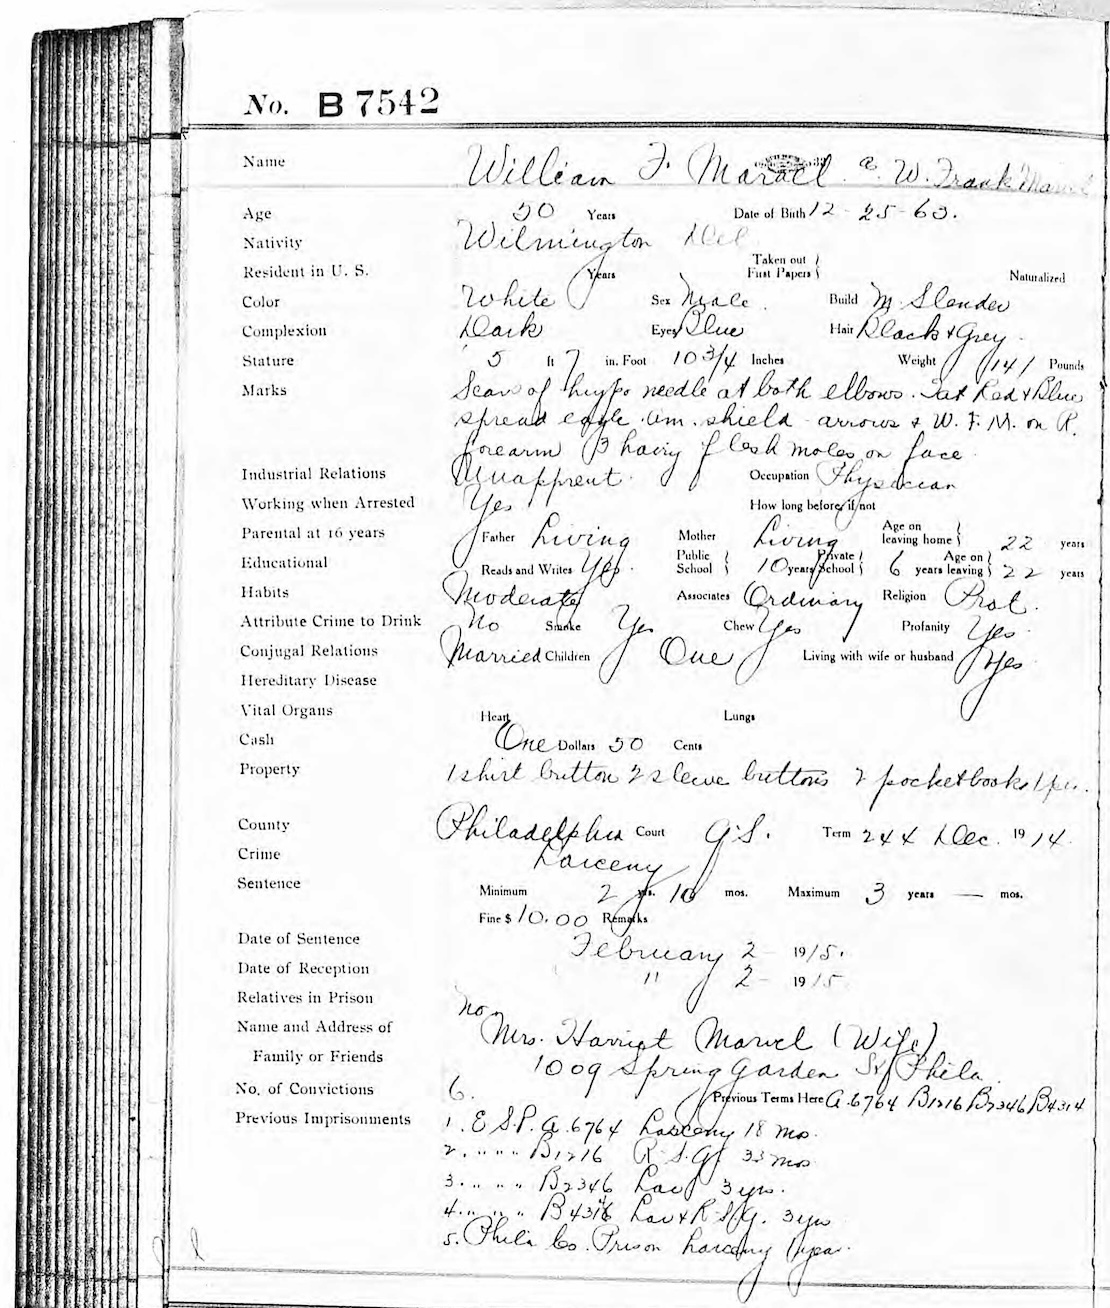 No. B 7542
Name William F. Marvel. a. W. Frank Marvel
Age 50 Years Date of Birth 12 - 25 - 63.
Nativity Wilmington Del
Resident in U. S. Years Taken out First Papers Naturalized
Color White Sex Male. Build M Slender
Complexion Dark Eyes Blue Hair Black & Grey.
Stature 5 ft 7 in. Foot 10 3/4 Inches Weight 141 Pounds
Marks Scars of hypo needle at both elbows. Tat Red & Blue
spread eagle Am. shield - arrows & W. F. M. on R.
forearm 3 hairy flesh moles on face.
Industrial Relations Unapprent. Occupation Physician
Working when Arrested Yes How long before, if not
Parental at 16 years Father Living Mother Living Age on leaving home 22 years
Educational Reads and Writes Yes. Public School 10 years Private School 6 years Age on leaving 22 years
Habits Moderate Associates Ordinary Religion Prot.
Attribute Crime to Drink No Smoke Yes Chew Yes Profanity Yes
Conjugal Relations Married Children One Living with wife or husband Yes
Hereditary Disease
Vital Organs Heart Lungs
Cash One Dollars 50 Cents
Property 1 shirt button 2 sleeve buttons 2 pocketbooks 1
County Philadelphia Court Q.S. Term 244 Dec. 1914.
Crime Larceny
Sentence Minimum 2 yrs. 10 mos. Maximum 3 years — mos.
Fine $ 10.00 Remarks
Date of Sentence February 2 - 1915.
Date of Reception " 2 - 1915
Relatives in Prison No
Name and Address of Mrs. Harriet Marvel (Wife)
Family or Friends 1009 Spring Garden St Phila
No. of Convictions 6. Previous Terms Here A.6764 B1216 B2346 B4314
Previous Imprisonments 1. E.S.P. A.6764 Larceny 18 mo.
2. " " " B1216 R.S.G. 33 mos
3. " " " B2346 Lar 3 yrs.
4. " " " Lar & R.S.G. 3 yrs
5. Phila Co. Prison Larceny 1 year.